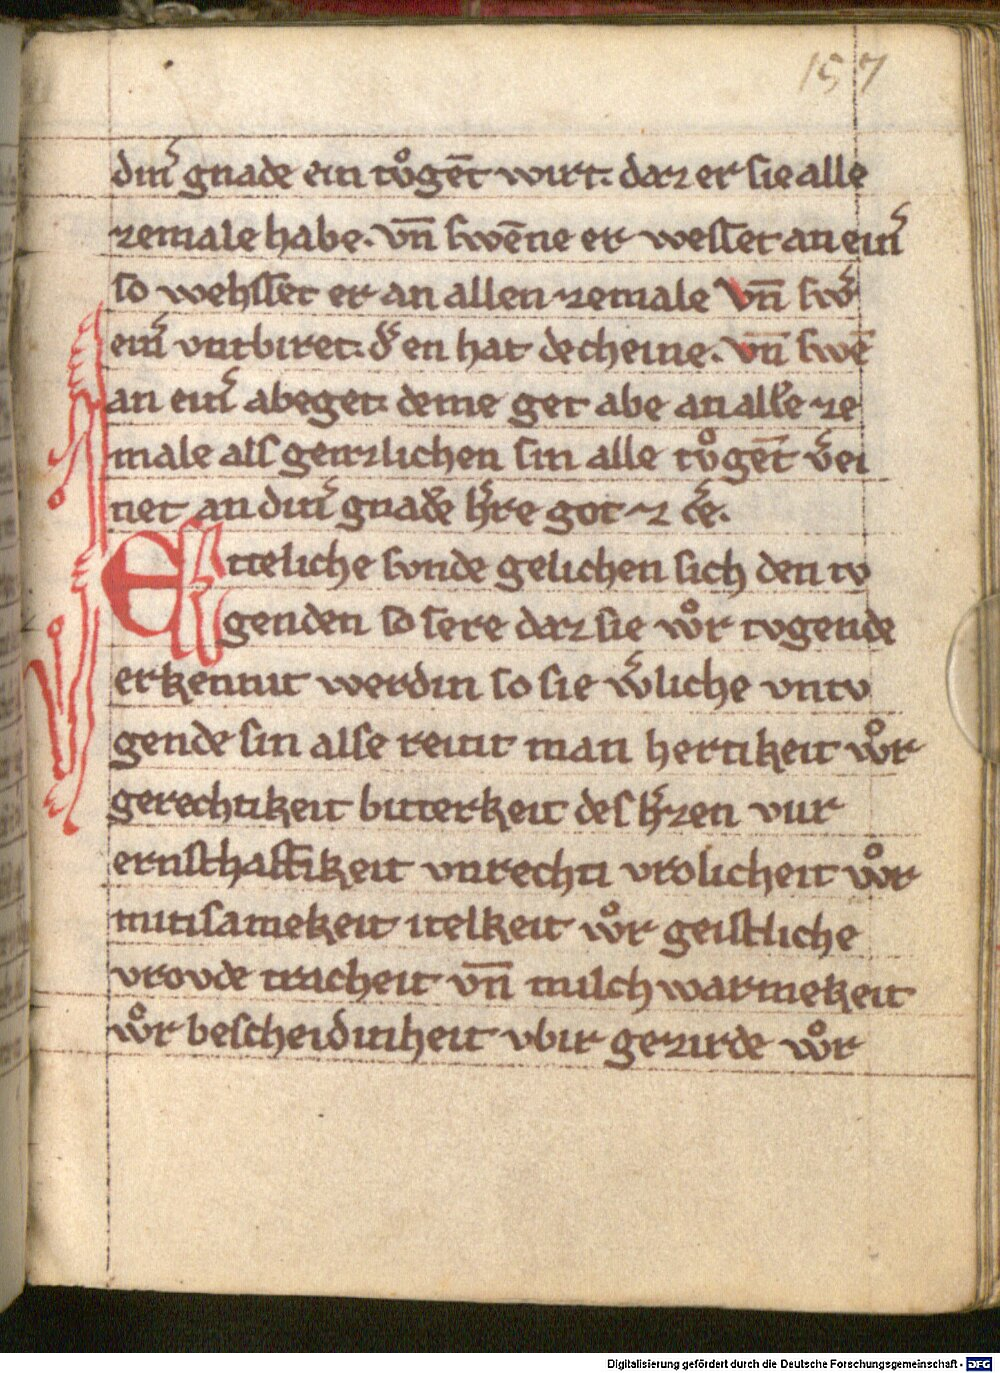 157
din͛ gnade ein tuͦgēt wirt. daz er sie alle
zemale habe. vn̄ swēne er wesset an ein͛
so wehsset er an allen zemale vn̄ sw͛
ein͛ vntbiret. d͛ en hat decheine. vn̄ swē
an ein͛ abeget. deme get abe an all͛e ze
male als genzlichen sin alle tuͦgēt v͛ei
net an din͛ gnad͛e h͛re got ⁊ c͛e.
Etteliche svnde gelichen sich den tv
genden so sere daz sie vuͦr tvgende
erkennit werdin so sie w͛liche vntv
gende sin alse reitit man hertikeit vuͦr
gerechtikeit bitterkeit des h͛zen vur
ernschaftikeit vnrechti vrolicheit vuͦr
mitisamekeit itelkeit vuͦr geistliche
vrovde tracheit vn̄ milch warmekeit
vuͦr bescheidinheit vbir gezirde vuͦr
Digitalisierung gefördert durch die Deutsche Forschungsgemeinschaft - DFG